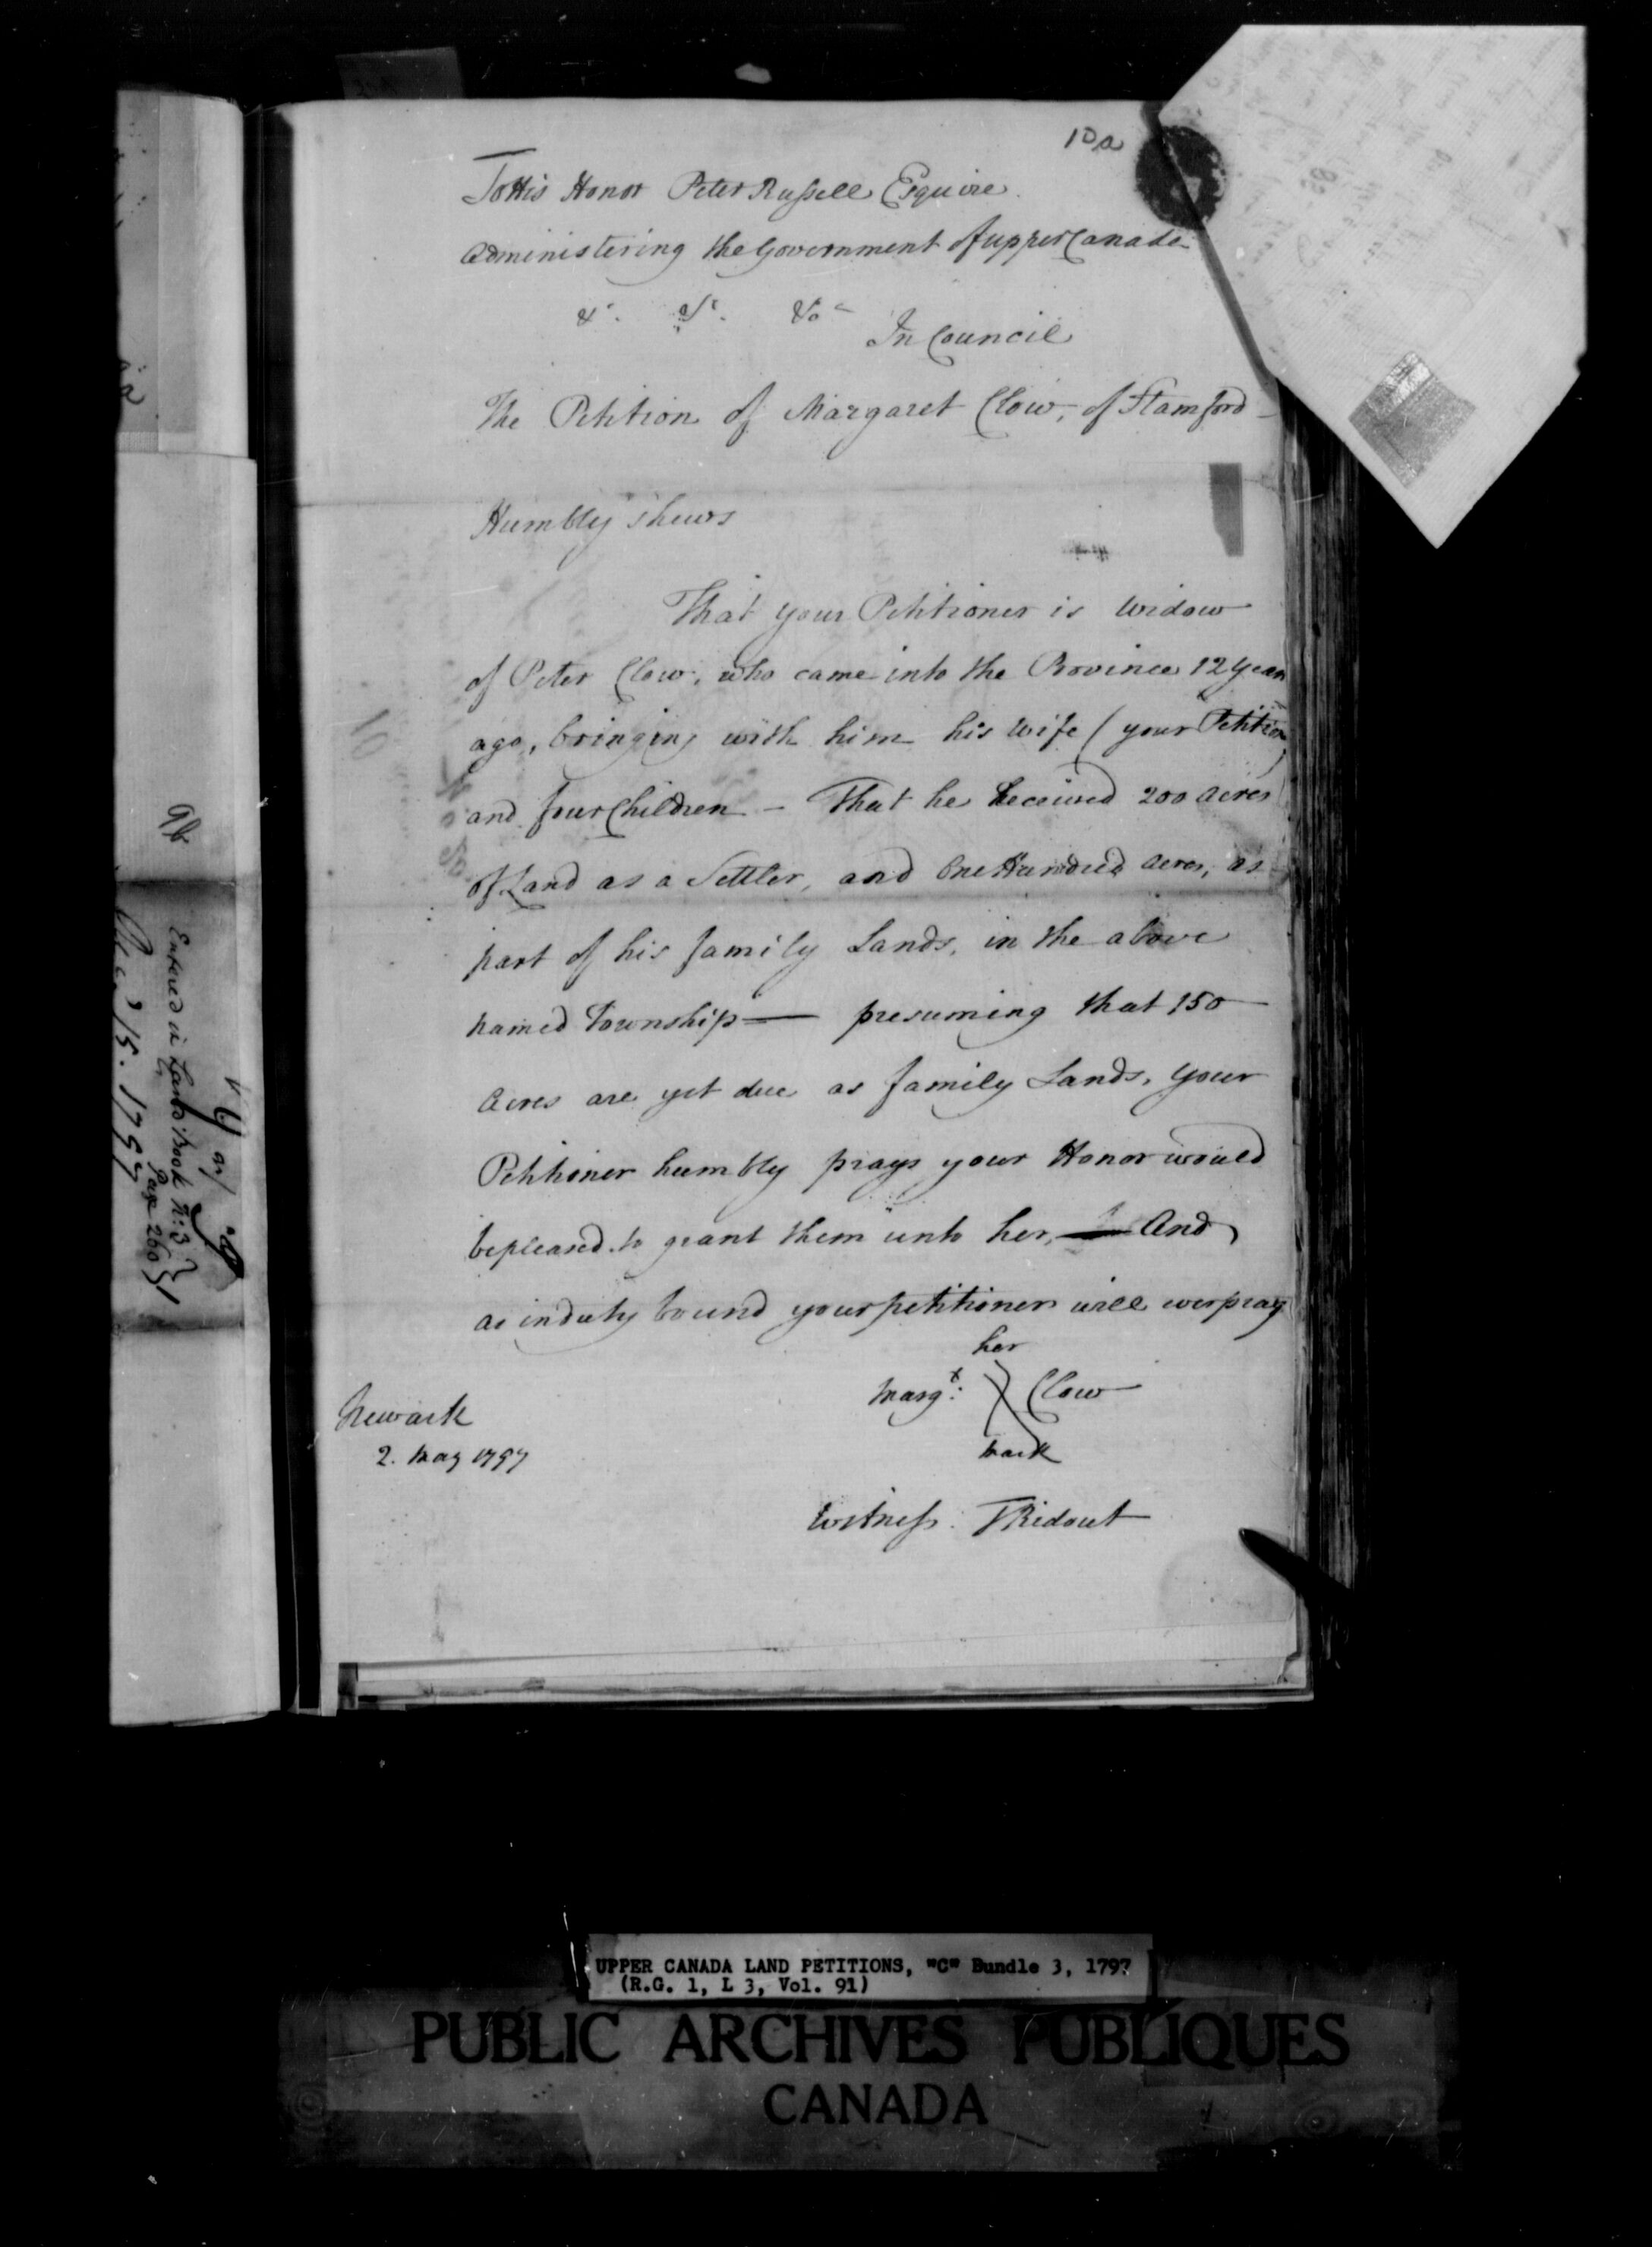 10a
To His Honor Peter Russell Esquire
Administering the Government of upper Canada
&c. &c. &c
In Council
The Petition of Margaret Clow, of Stamford
Humbly Shews
That your Petitioner is Widow
of Peter Clow, who came into the Province 12 years
ago, bringing with him his Wife (your Petitioner)
and four Children - That he Received 200 acres
of Land as a Settler, and One Hundred acres, as
part of his family Lands, in the above
named Township — presuming that 150
Acres are yet due as family Lands, your
Petitioner humbly prays your Honor would
be pleased to grant them unto her, — And
as in duty bound your petitioner will ever pray
her
Margt: Clow
mark
Newark
2. May 1797
Witness. T Ridout
9b
Entered in Land Book N: 3
Page 260
15. 1797
UPPER CANADA LAND PETITIONS, "C" Bundle 3, 1797
(R.G. 1, L 3, Vol. 91)
PUBLIC ARCHIVES PUBLIQUES
CANADA